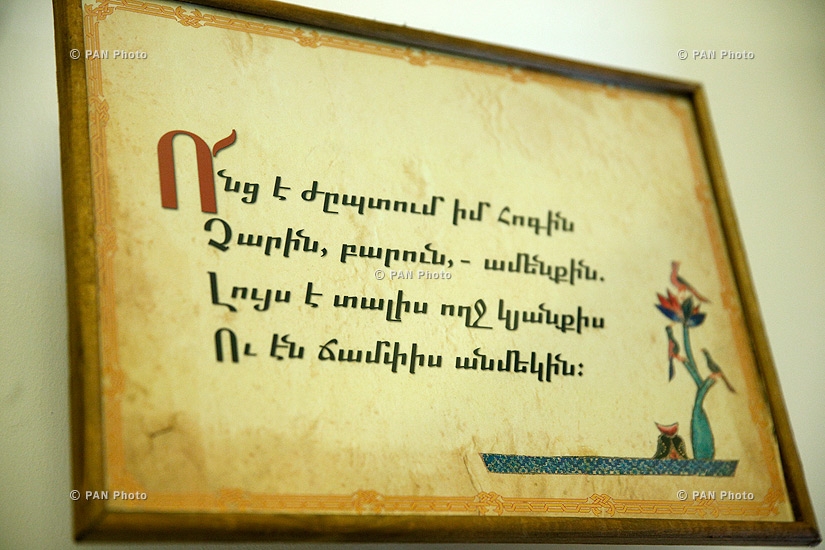 © PAN Photo
© PAN Photo
Ո՜նց է ժըպտում իմ Հոգին
Չարին, բարուն,- ամենքին.
© PAN Photo
Լույս է տալիս ողջ կյանքիս
Ու էն ճամփիս անմեկին:
© PAN Photo
© PAN Photo